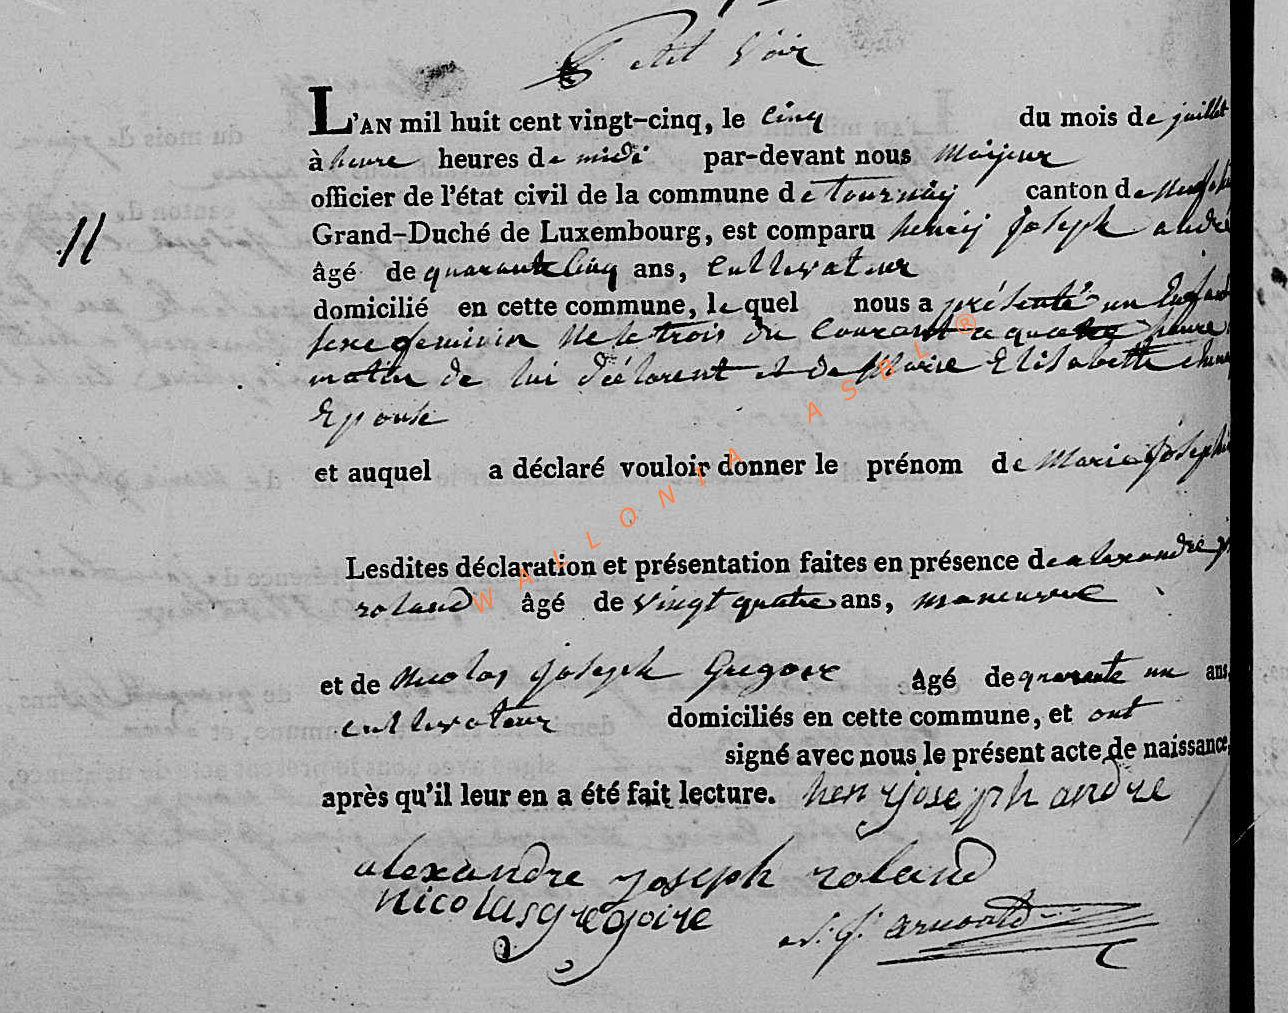 Petit Voir
L'AN mil huit cent vingt-cinq, le cinq du mois de juillet
à heure heures de midi par-devant nous Majeur
officier de l'état civil de la commune de tournay canton de
11
Grand-Duché de Luxembourg, est comparu henry Joseph andré
âgé de quarante cinq ans, Cultivateur
domicilié en cette commune, le quel nous a présenté un Enfant
sexe feminin Ne le trois du Courant a quatre heure
matin de lui déclarent et de Marie Elisabette
Epouse
et auquel a déclaré vouloir donner le prénom de Marie Joseph
Lesdites déclaration et présentation faites en présence de alexandre
roland âgé de vingt quatre ans, maneuvre
et de Nicolas Joseph Gregoire âgé de quarante un ans,
cultivateur domiciliés en cette commune, et ont
signé avec nous le présent acte de naissance,
après qu'il leur en a été fait lecture. henry joseph andre
alexandre joseph roland
nicolas gregoire
arnould
WALLONIA ASBL ®